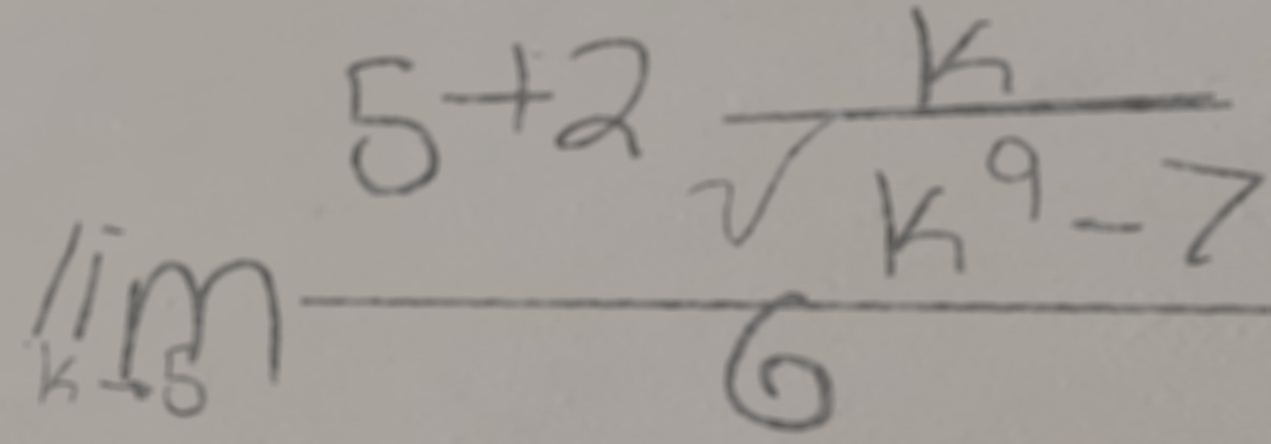 \lim_{k \to 5} \frac{5+2 \frac{k}{\sqrt{k^9-7}}}{6}